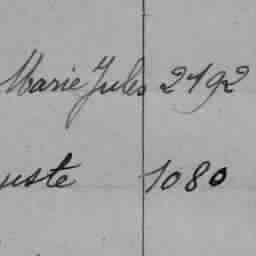 Marie Jules 2192
uste 1080